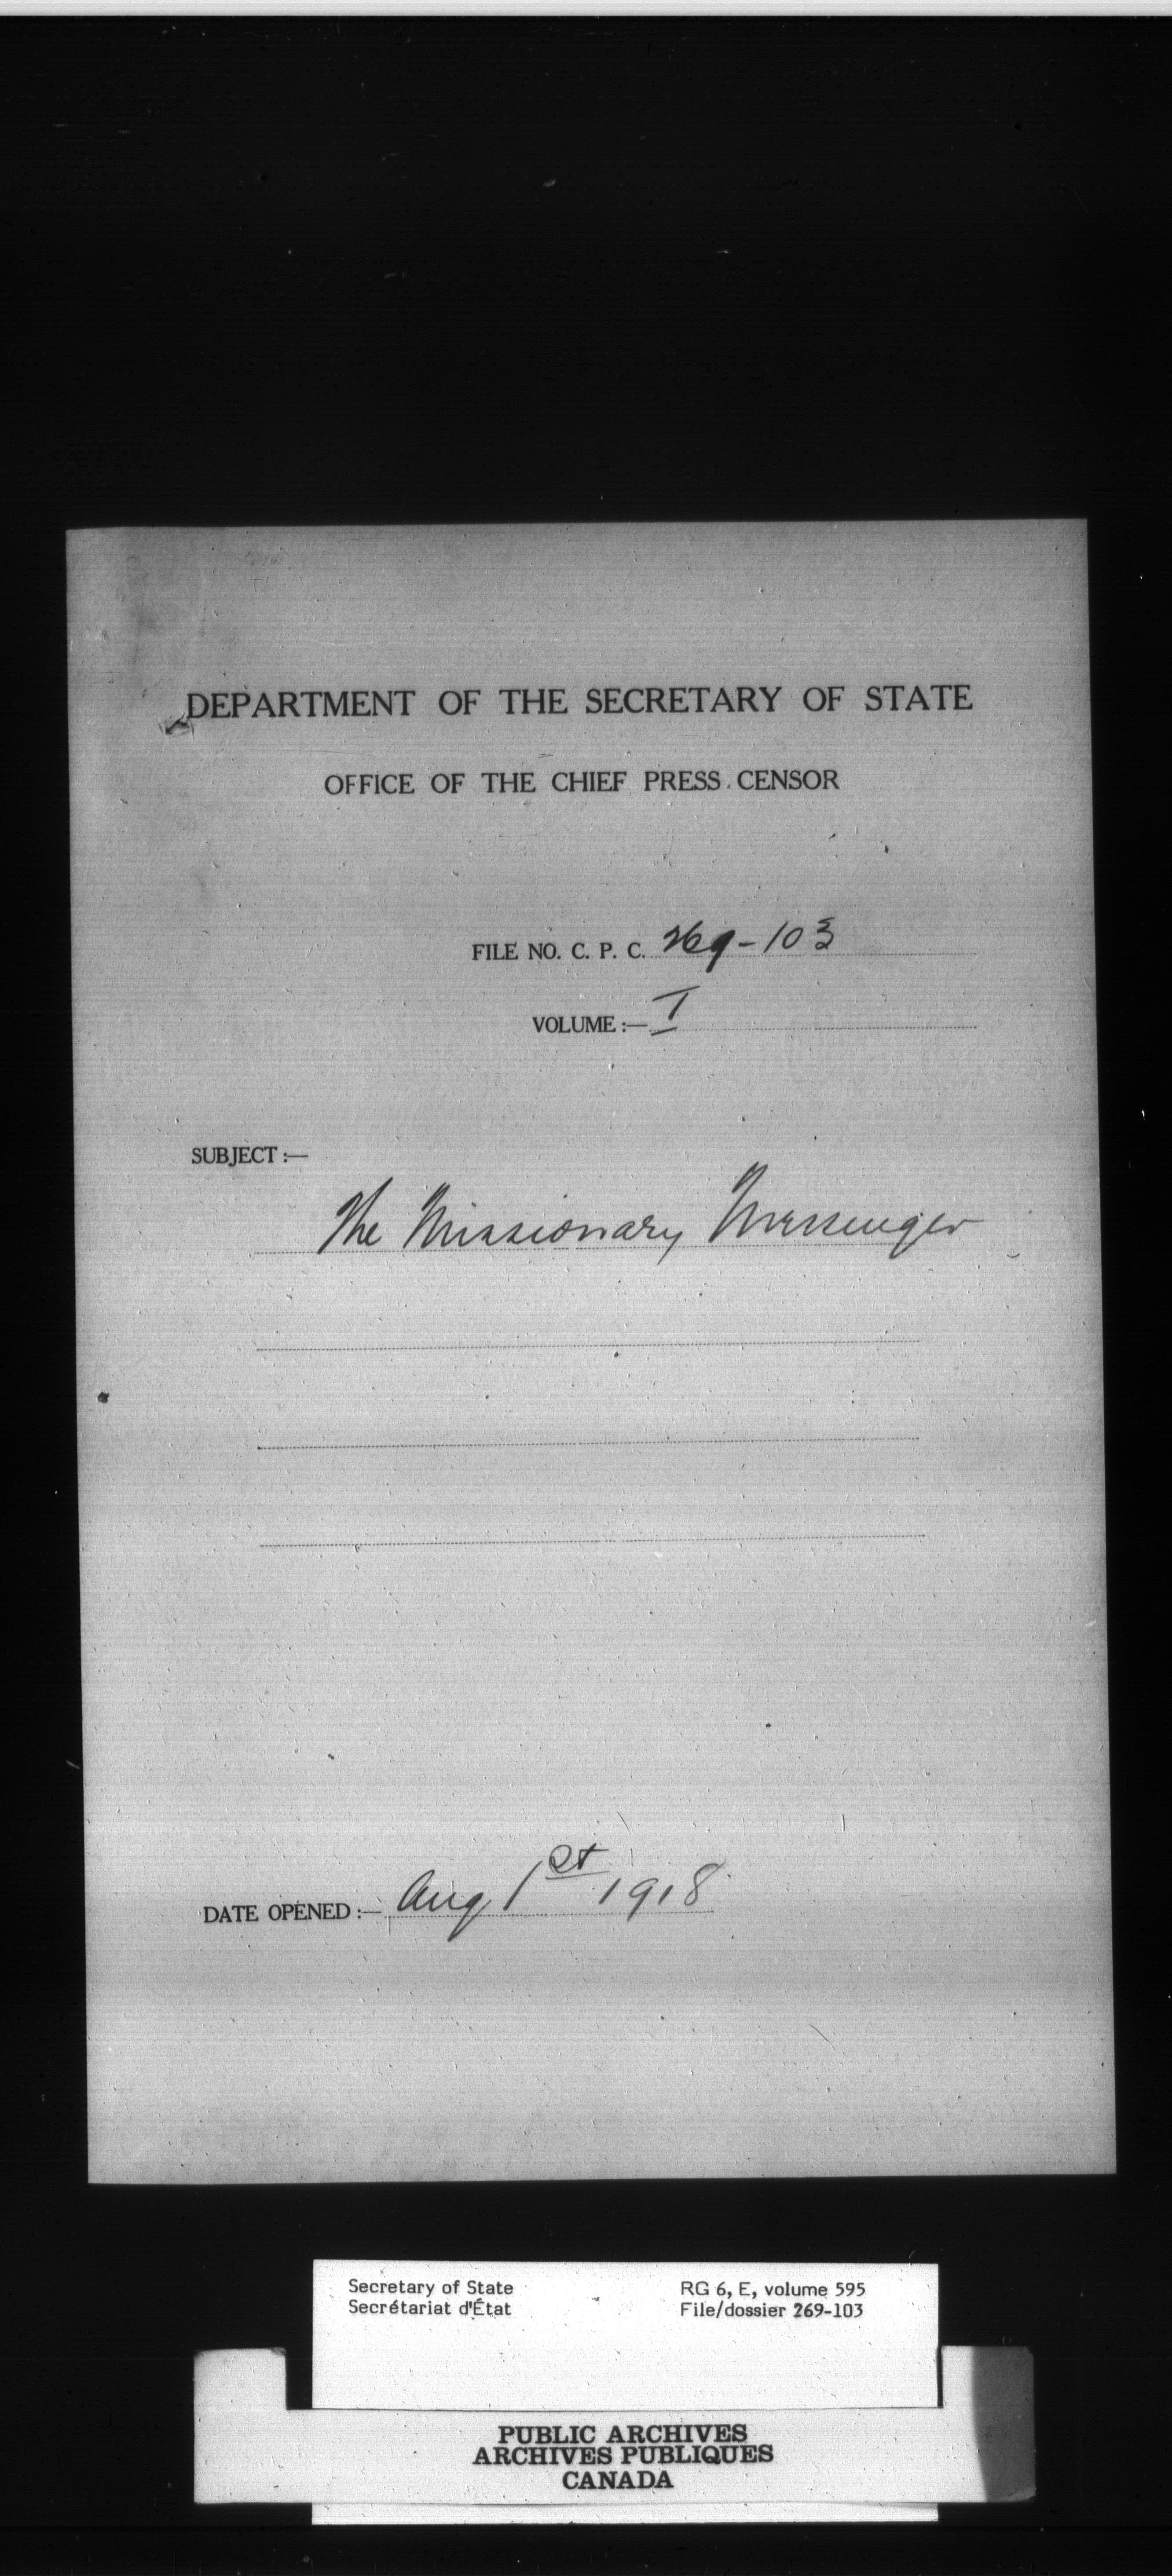 DEPARTMENT OF THE SECRETARY OF STATE
OFFICE OF THE CHIEF PRESS CENSOR
FILE NO. C. P. C. 269-103
VOLUME :— I
SUBJECT :—
The Missionary Messenger
DATE OPENED :— Aug 1st 1918
Secretary of State
Secrétariat d'État
RG 6, E, volume 595
File/dossier 269-103
PUBLIC ARCHIVES
ARCHIVES PUBLIQUES
CANADA